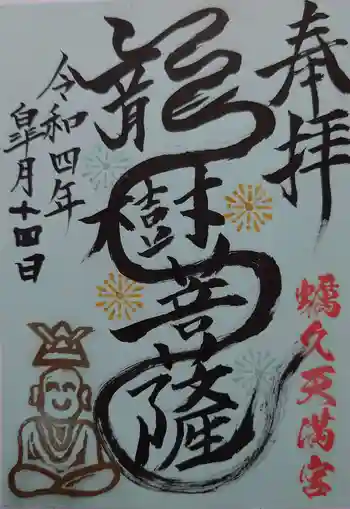 奉拝
龍樹菩薩
蠣久天満宮
令和四年
皐月十四日